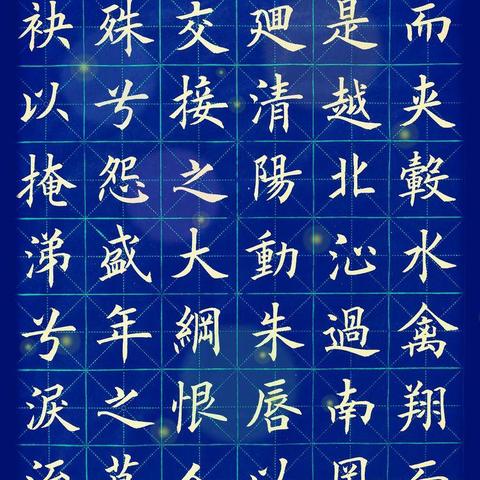 而夾轂水禽翔而
是越北沚過南岡
廻清陽動朱唇以
交接之大綱恨人
殊兮怨盛年之莫
袂以掩涕兮淚流